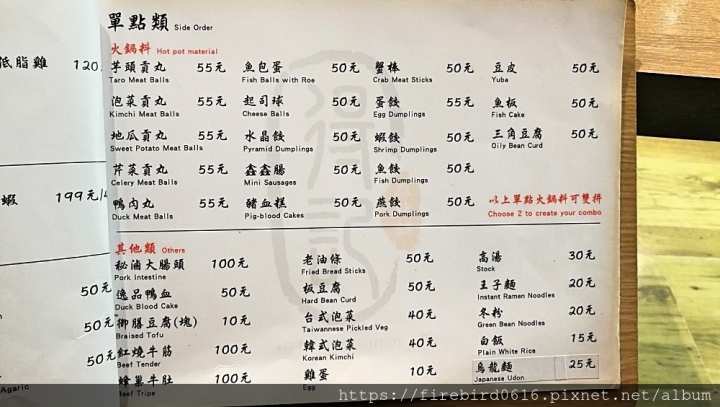 單點類 Side Order
火鍋料 Hot pot material
芋頭貢丸 55元 魚包蛋 50元 蟹棒 50元 豆皮 50元
Taro Meat Balls Fish Balls with Roe Crab Meat Sticks Yuba
泡菜貢丸 55元 起司球 50元 蛋餃 55元 魚板 50元
Kimchi Meat Balls Cheese Balls Egg Dumplings Fish Cake
地瓜貢丸 55元 水晶餃 50元 蝦餃 50元 三角豆腐 50元
Sweet Potato Meat Balls Pyramid Dumplings Shrimp Dumplings Oily Bean Curd
芹菜貢丸 55元 鑫鑫腸 50元 魚餃 50元
Celery Meat Balls Mini Sausages Fish Dumplings
鴨肉丸 55元 豬血糕 50元 燕餃 50元 以上單點火鍋料可雙拼
Duck Meat Balls Pig-blood Cakes Pork Dumplings Choose 2 to create your combo
其他類 Others
秘滷大腸頭 100元 老油條 50元 高湯 30元
Pork Intestine Fried Bread Sticks Stock
逸品鴨血 50元 板豆腐 50元 王子麵 20元
Duck Blood Cake Hard Bean Curd Instant Ramen Noodles
御膳豆腐(塊) 10元 台式泡菜 40元 冬粉 20元
Braised Tofu Taiwannese Pickled Veg Green Bean Noodles
紅燒牛筋 100元 韓式泡菜 40元 白飯 15元
Beef Tender Korean Kimchi Plain White Rice
蜂巢牛肚 100元 雞蛋 10元 烏龍麵 25元
Beef Tripe Egg Japanese Udon
低脂雞 120
蝦 199元/
50元
50元
50元
Agaric
得記
https://firebird0616.pixnet.net/album